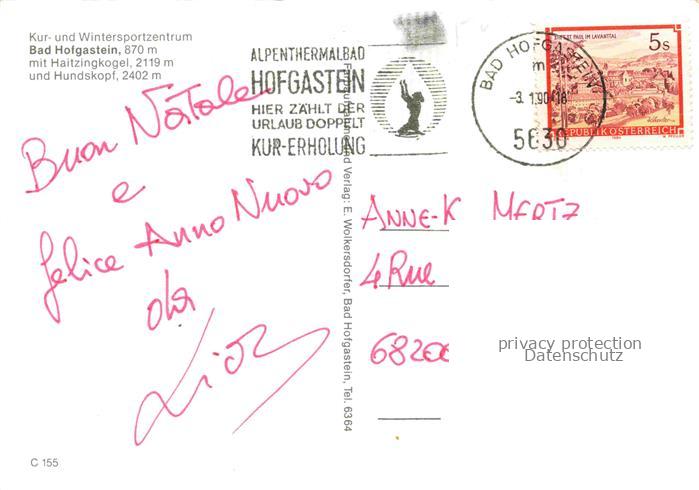 Kur- und Wintersportzentrum
Bad Hofgastein, 870 m
mit Haitzingkogel, 2119 m
und Hundskopf, 2402 m
Buon Natale
e
felice Anno Nuovo
da
C 155
ALPENTHERMALBAD
HOFGASTEIN
HIER ZÄHLT DER
URLAUB DOPPELT
KUR-ERHOLUNG
Verlag: E. Wolkersdorfer, Bad Hofgastein, Tel. 6364
BAD HOFGASTEIN
5630
ST. PAUL IM LAVANTTAL
5s
REPUBLIK ÖSTERREICH
ANNE-K MERTZ
4 Rue
68200
privacy protection
Datenschutz